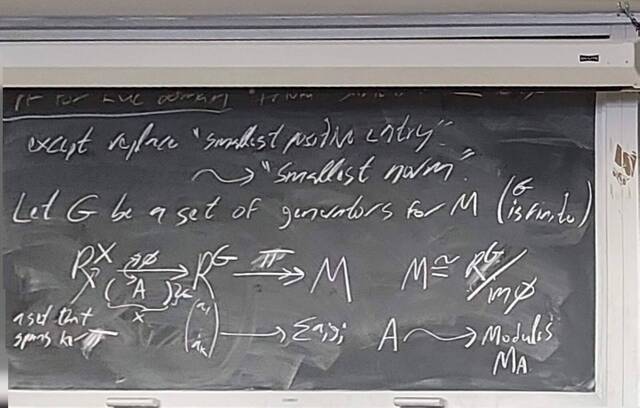 except replace "smallest positive entry"
⇝ "smallest norm."
Let G be a set of generators for M (G is finite)
R^X →^{∃φ} R^G ↠^{π} M M ≅ R^G/imφ
( A )
X
a set that
spans ker π
(a₁ ⋮ aₖ) → Σaᵢgᵢ A ⇝ Modules
M_A